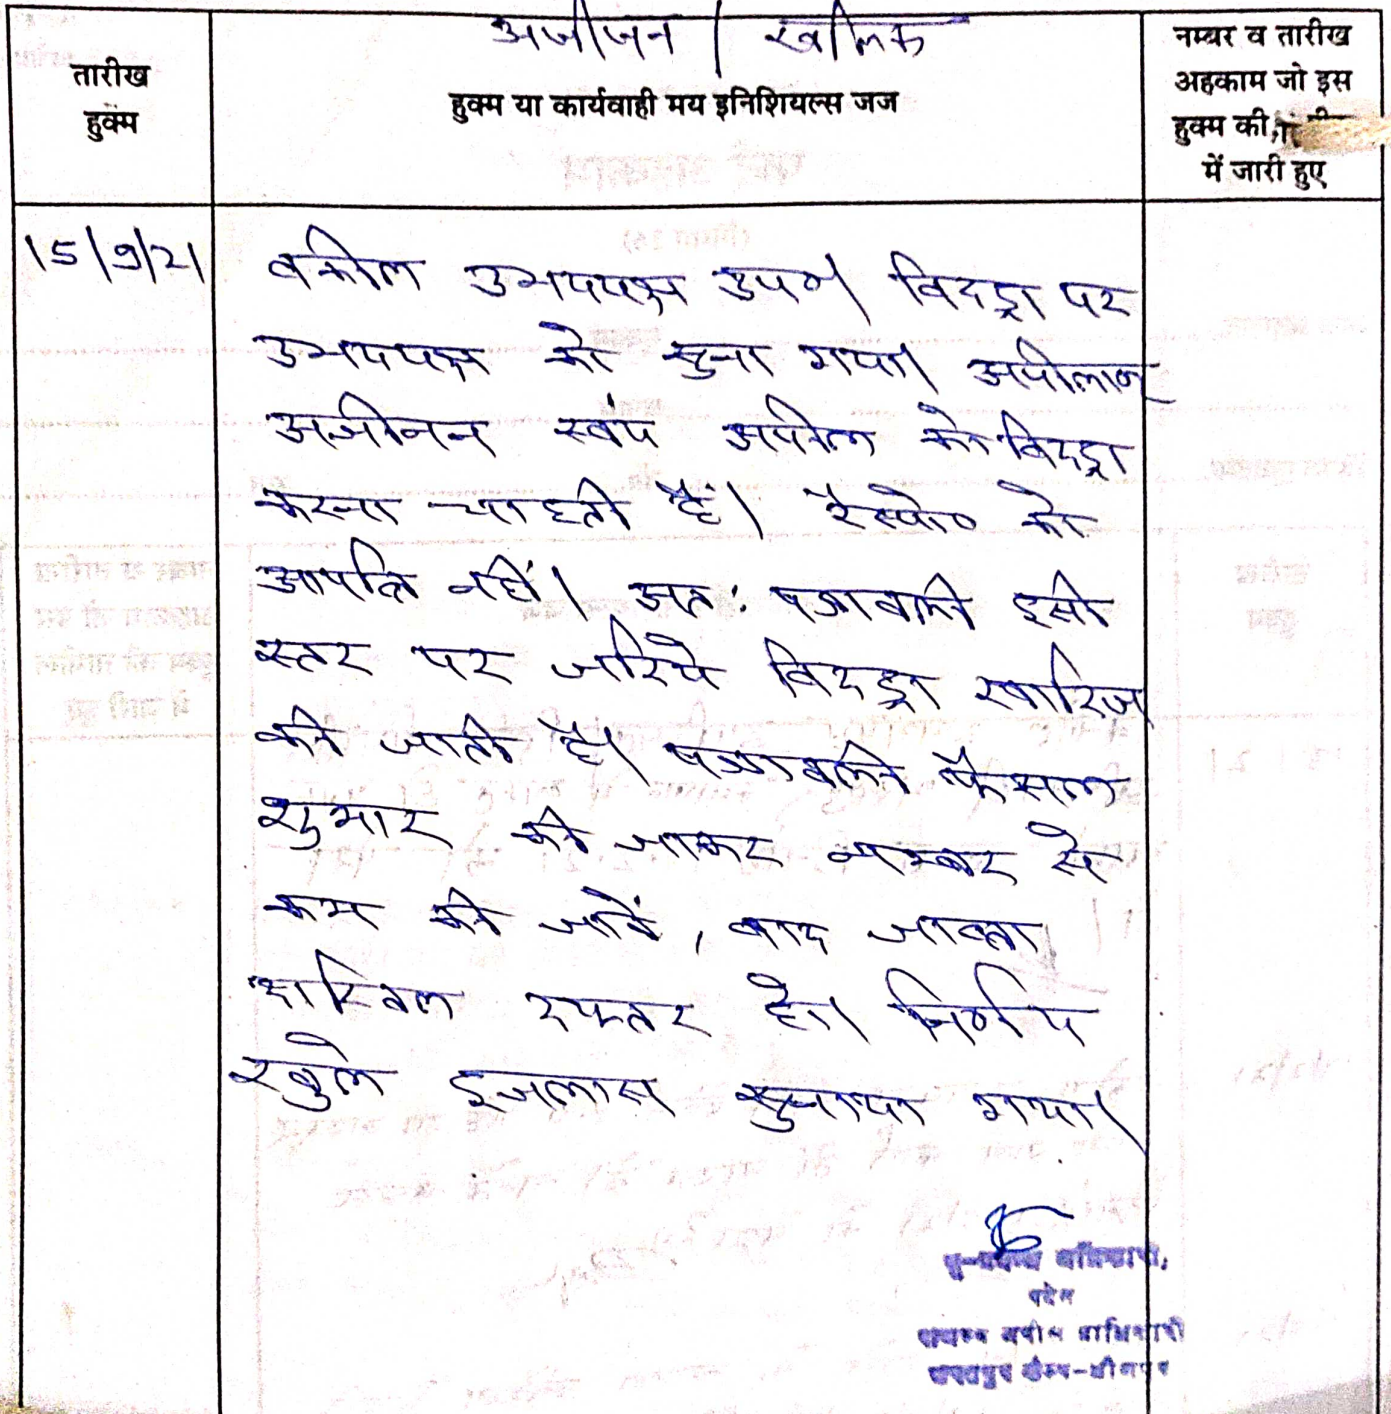 अजीजन / खलिक
तारीख
हुक्म
हुक्म या कार्यवाही मय इनिशियल्स जज
नम्बर व तारीख
अहकाम जो इस
हुक्म की
में जारी हुए
15/9/21
वकील उभयपक्ष उप०। विदड्रा पर
उभयपक्ष को सुना गया। अपीलान्ट
अजीजन स्वंय अपील को विदड्रा
करना चाहती हैं। रैस्पो० को
आपत्ति नहीं। अत: पत्रावली इसी
स्तर पर जरिये विदड्रा खारिज
की जाती है। पत्रावली फैसल
शुमार की जाकर नम्बर से
कम की जावें, बाद जाब्ता
दाखिल दफ्तर हो। निर्णय
खुले इजलास सुनाया गया।
भू-प्रबन्ध अधिकारी,
पदेन
राजस्व अपील प्राधिकारी